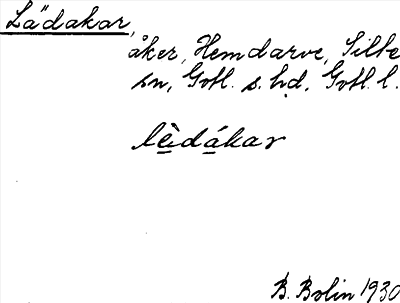 Lädakar,
åker, Hemdarve, Silte
sn, Gotl. s. hd. Gotl. l.
lèdákar
B. Bolin 1930